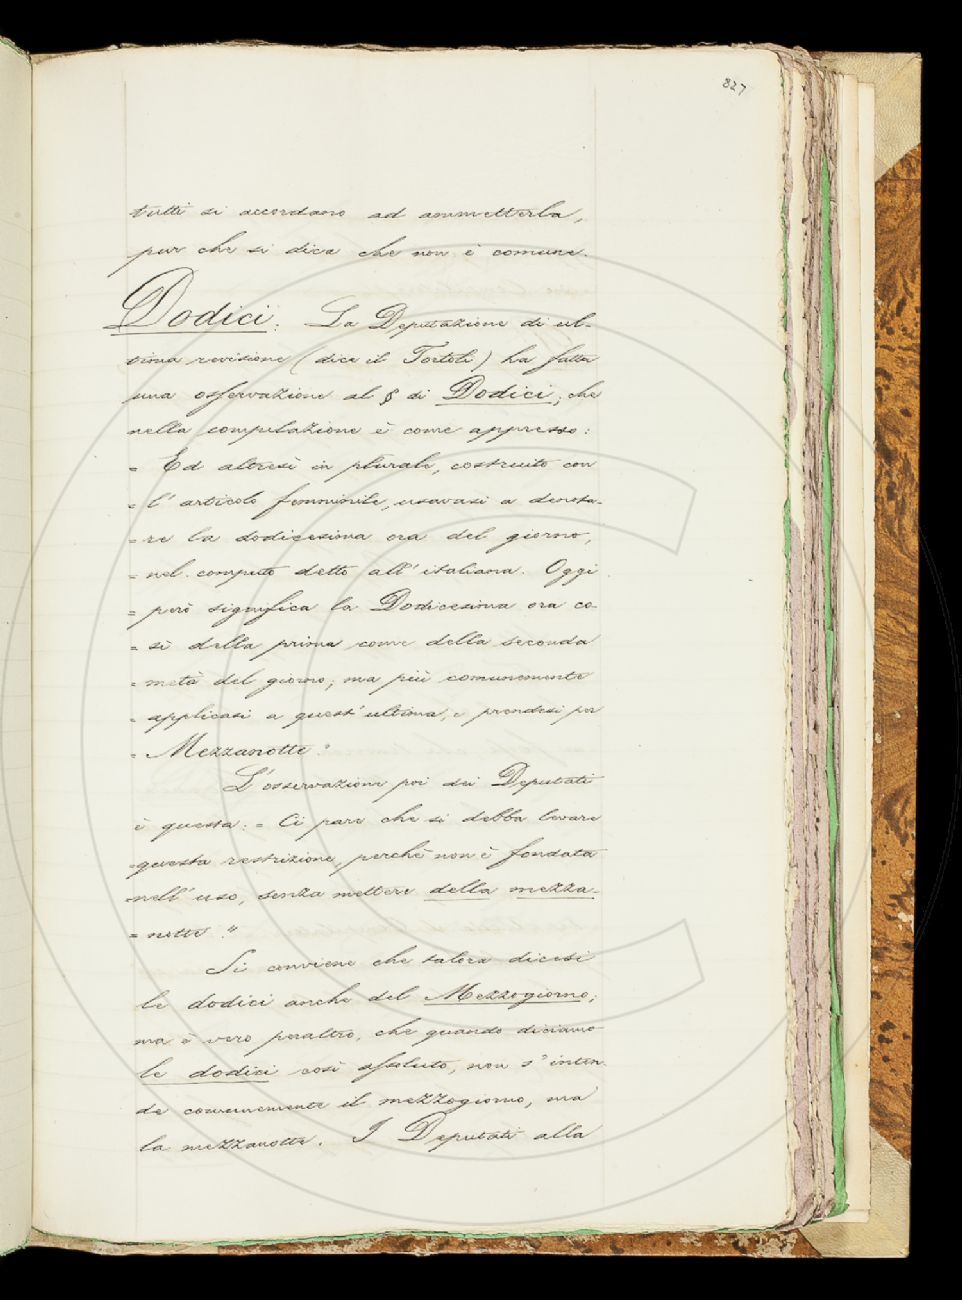 827
tutti si accordano ad ammetterla,
pur che si dica che non è comune.
Dodici. La Deputazione di ul-
tima revisione (dice il Tortoli) ha fatta
una osservazione al § di Dodici, che
nella compilazione è come appresso:
= Ed altresì in plurale, costruito con
= l'articolo femminile, usavasi a denota-
= re la dodicesima ora del giorno,
= nel computo detto all'italiana. Oggi
= però significa la Dodicesima ora co-
= sì della prima come della seconda
= metà del giorno; ma più comunemente
= applicasi a quest'ultima, e prendesi per
= Mezzanotte."
L'osservazione poi dei Deputati
è questa: = Ci pare che si debba levare
= questa restrizione, perchè non è fondata
= nell'uso, senza mettere della mezza-
= notte."
Si conviene che talora dicesi
le dodici anche del Mezzogiorno;
ma è vero peraltro, che quando diciamo
le dodici così assoluto, non s'inten-
de comunemente il mezzogiorno, ma
la mezzanotte. I Deputati alla